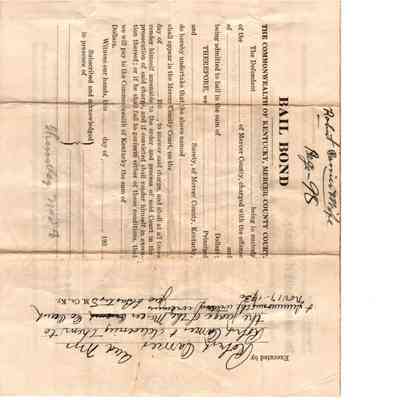 BAIL BOND
THE COMMONWEALTH OF KENTUCKY, MERCER COUNTY COURT.
The Defendant being in custody
of the of Mercer County, charged with the offense
of
being admitted to bail in the sum of Dollars:
THEREFORE, we Principal
and Surety, of Mercer County, Kentucky,
do hereby undertake that the above named
shall appear in the Mercer County Court, on the
day of 19 to answer said charge, and shall at all times
render himself amenable to the order and process of said Court in the
prosecution of said charge, and if convicted shall render himself in execu-
tion thereof; or if he shall fail to perform either of these conditions, that
we will pay to the Commonwealth of Kentucky the sum of
Dollars.
Witness our hands, this day of 193
Subscribed and acknowledged
in presence of
Thursday Nov 13
Pg. 98
Executed by
delivering them to
the Judge of the Mercer
Nov 17-1930